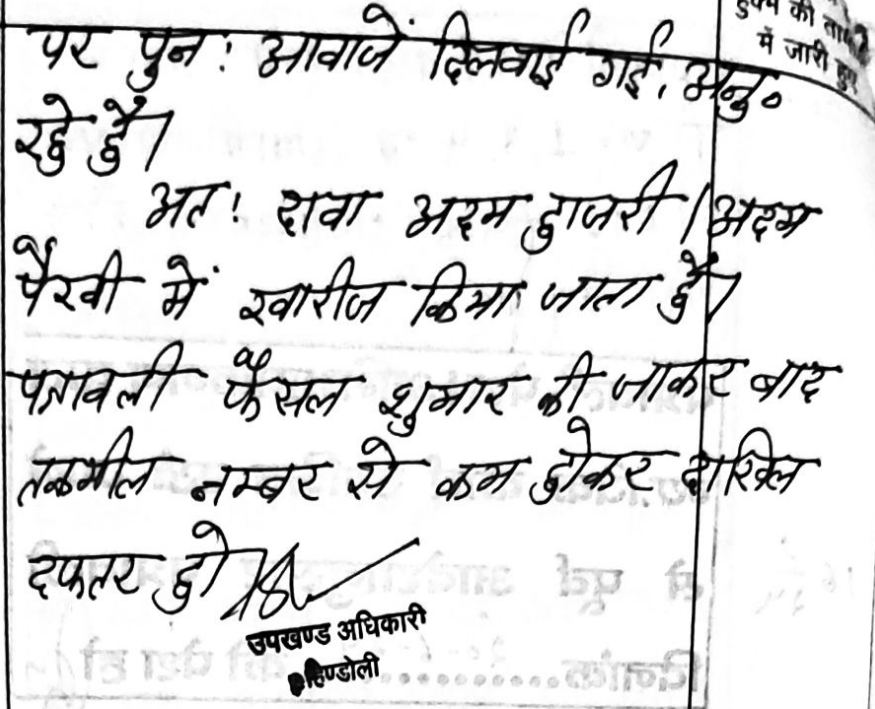 हुक्म की
में जारी हुए
पर पुनः आवाजें दिलवाई गई, अनु०
रहे हैं।
अतः दावा अदम हाजरी / अदम
पैरवी में खारीज किया जाता है।
पत्रावली फैसल शुमार की जाकर बाद
तकमील नम्बर से कम होकर दाखिल
दफ्तर हो।
उपखण्ड अधिकारी
हिण्डोली